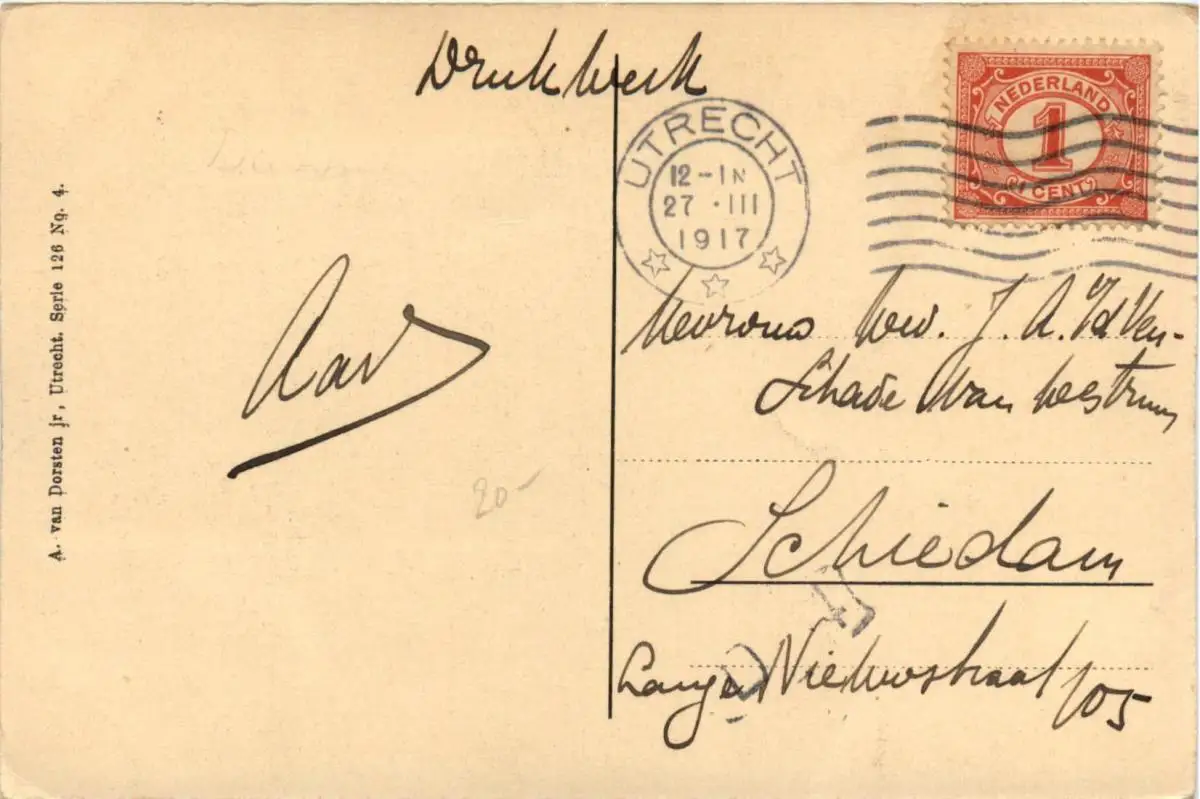 Drukwerk
NEDERLAND
1
1 CENT
UTRECHT
12-1N
27 · III
1917
A. van Dorsten jr, Utrecht. Serie 126 No. 4.
Mevrouw J. A. Ven-
Schade van Westrum
20-
Schiedam
Lange Nieuwstraat 105